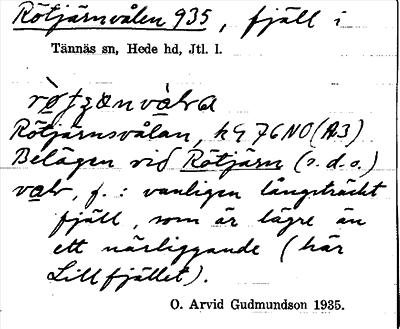 Rötjärnvålen 935, fjäll i
Tännäs sn, Hede hd, Jtl. l.
Rötjärnsvålan, k 976NO (A3)
Belägen vid Rötjärn (s.d.o.)
f.: vanligen långsträckt
fjäll, som är lägre än
ett närliggande (här
Lillfjället).
O. Arvid Gudmundson 1935.